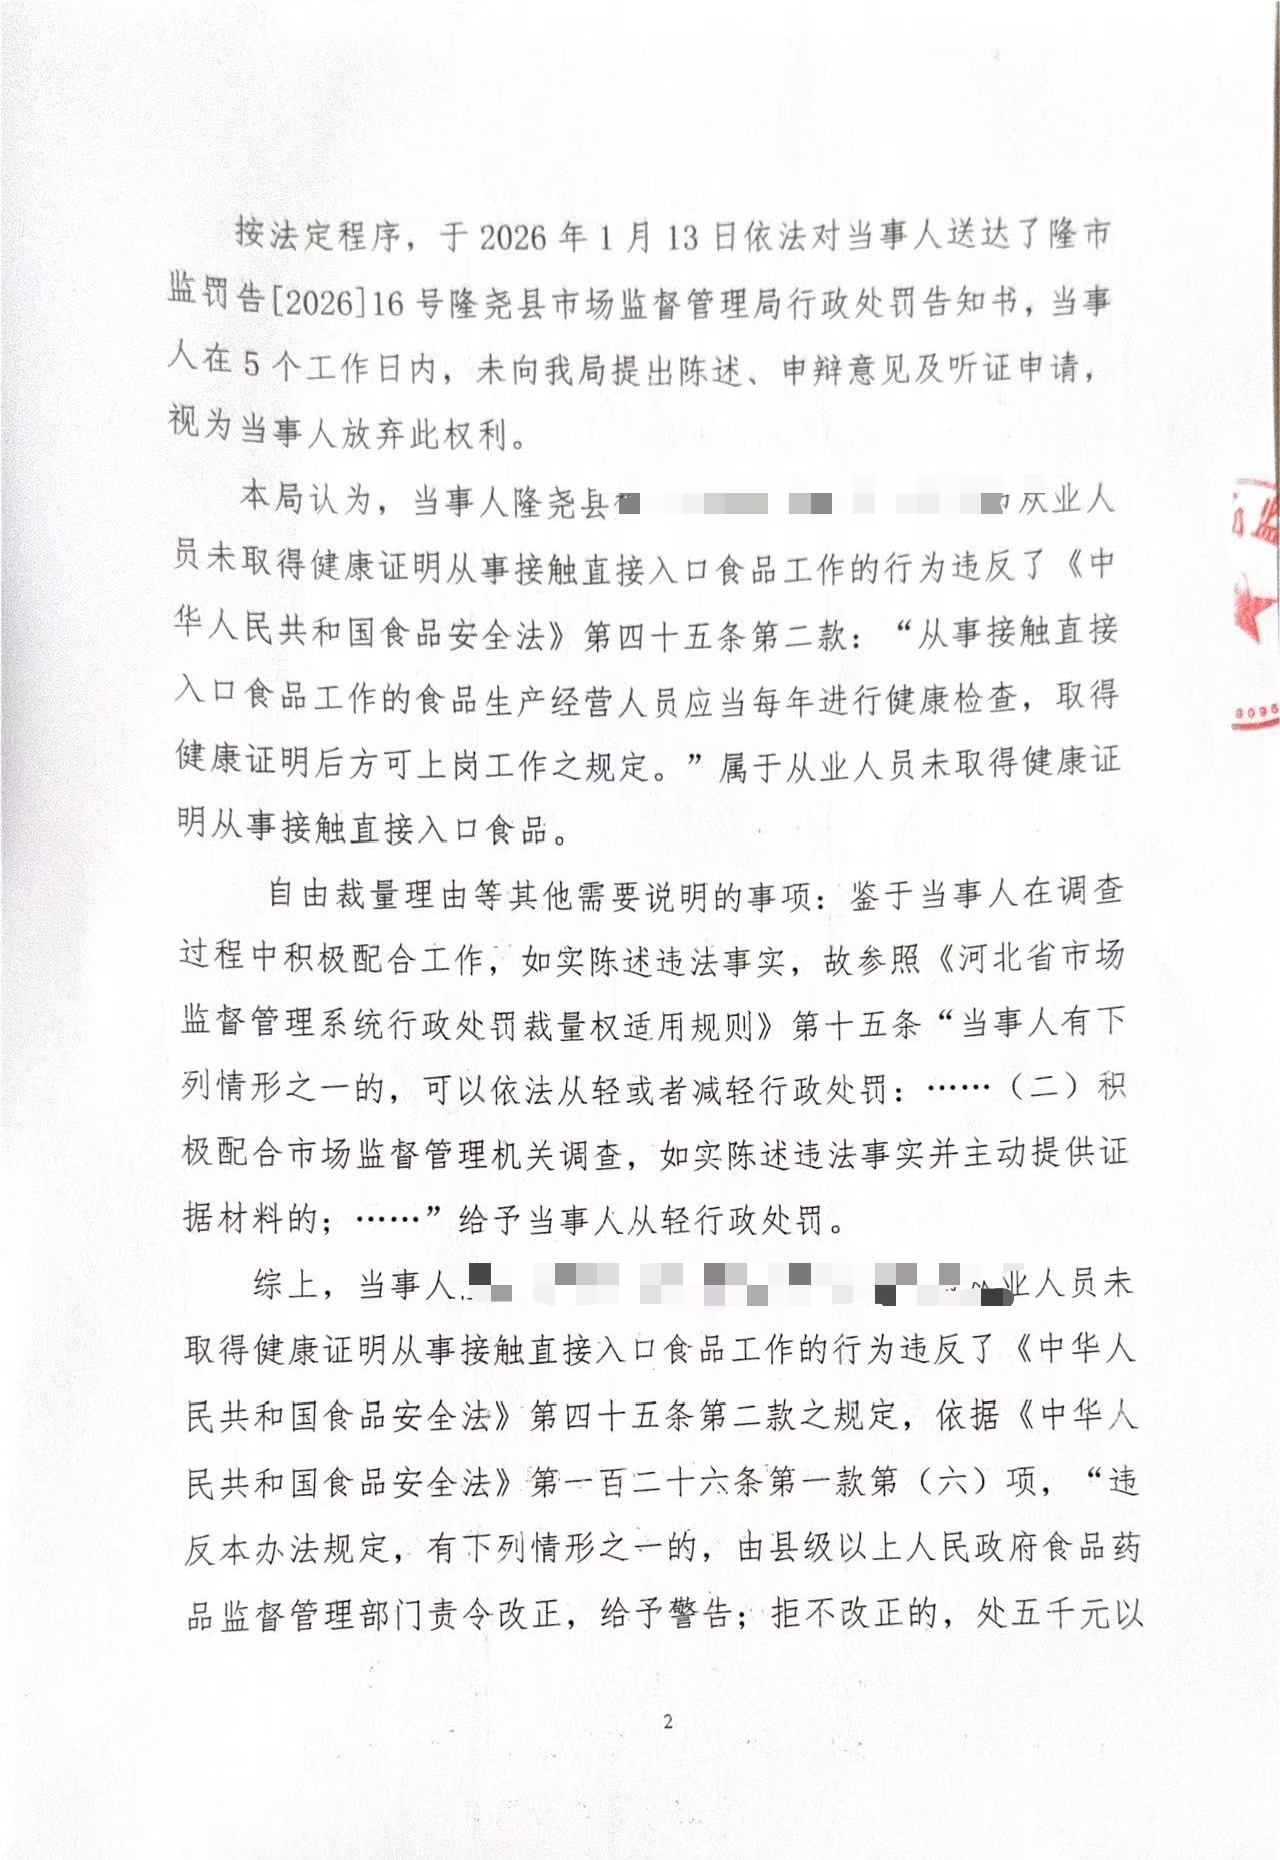 按法定程序，于 2026 年 1 月 13 日依法对当事人送达了隆市
监罚告[2026]16 号隆尧县市场监督管理局行政处罚告知书，当事
人在 5 个工作日内，未向我局提出陈述、申辩意见及听证申请，
视为当事人放弃此权利。
本局认为，当事人隆尧县 从业人
员未取得健康证明从事接触直接入口食品工作的行为违反了《中
华人民共和国食品安全法》第四十五条第二款：“从事接触直接
入口食品工作的食品生产经营人员应当每年进行健康检查，取得
健康证明后方可上岗工作之规定。”属于从业人员未取得健康证
明从事接触直接入口食品。
自由裁量理由等其他需要说明的事项：鉴于当事人在调查
过程中积极配合工作，如实陈述违法事实，故参照《河北省市场
监督管理系统行政处罚裁量权适用规则》第十五条“当事人有下
列情形之一的，可以依法从轻或者减轻行政处罚：……（二）积
极配合市场监督管理机关调查，如实陈述违法事实并主动提供证
据材料的；……”给予当事人从轻行政处罚。
综上，当事人 从业人员未
取得健康证明从事接触直接入口食品工作的行为违反了《中华人
民共和国食品安全法》第四十五条第二款之规定，依据《中华人
民共和国食品安全法》第一百二十六条第一款第（六）项，“违
反本办法规定，有下列情形之一的，由县级以上人民政府食品药
品监督管理部门责令改正，给予警告；拒不改正的，处五千元以
2